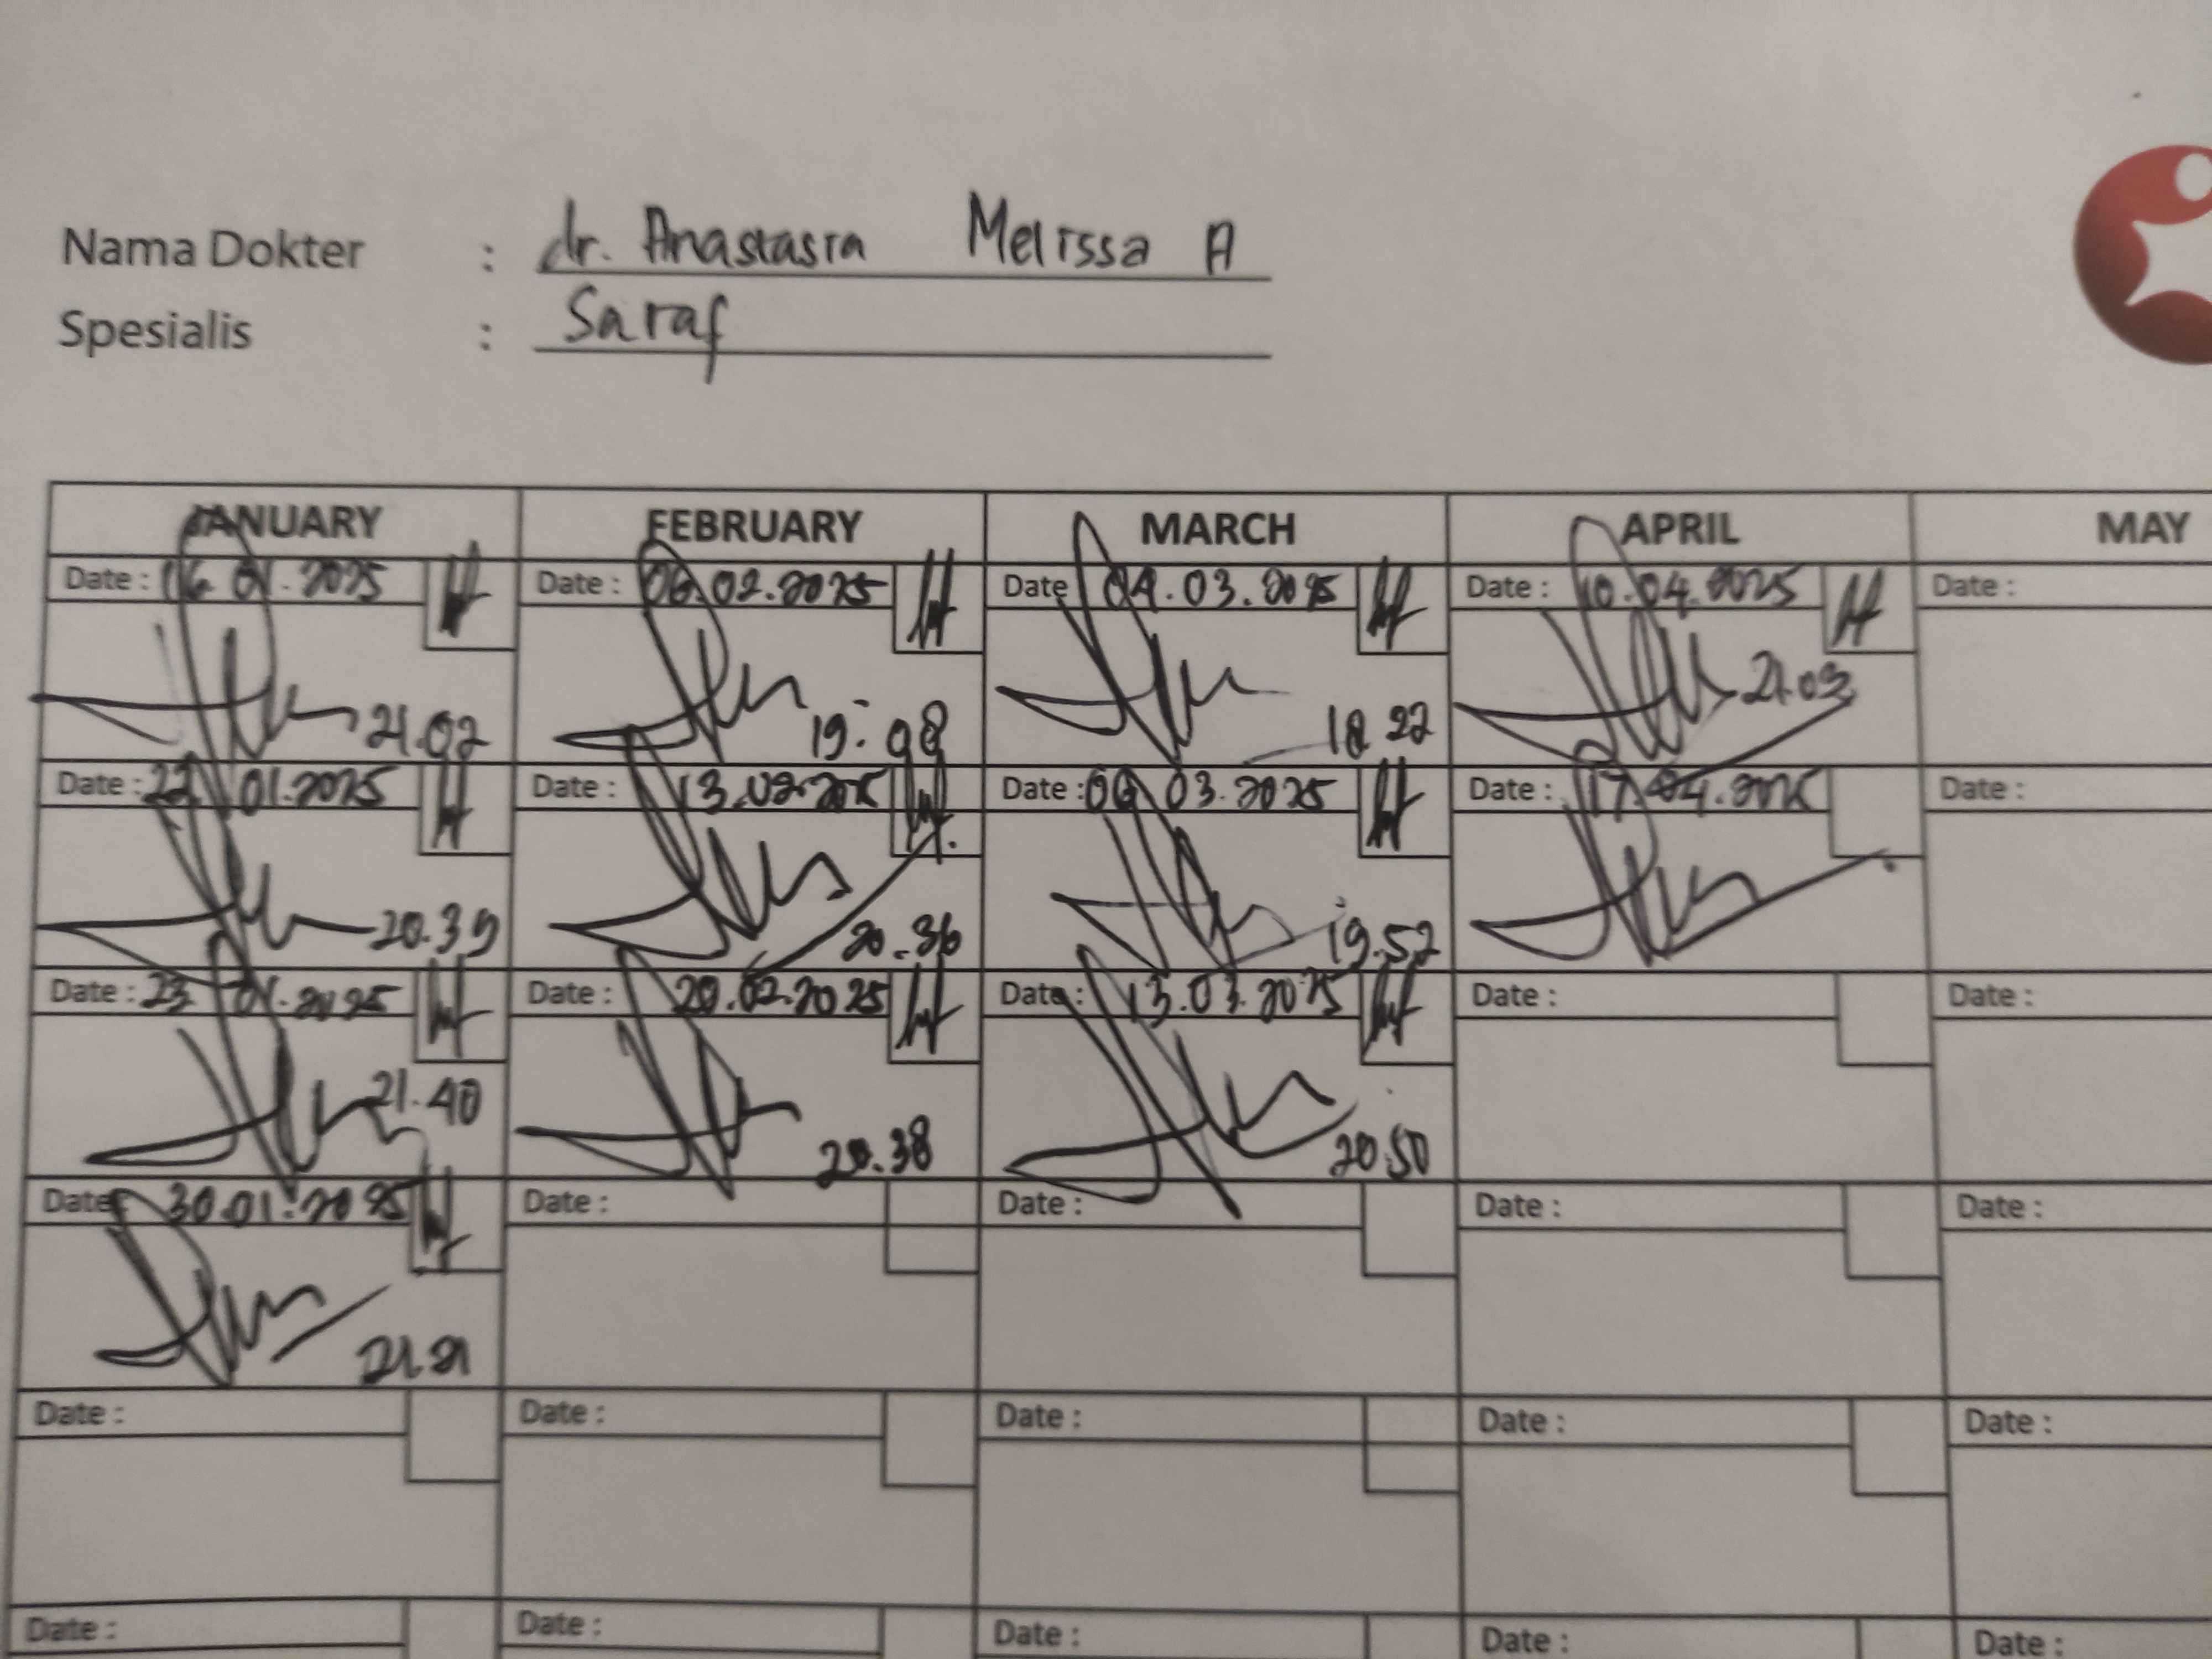 Nama Dokter : dr. Anastasia Melissa A
Spesialis : Saraf
JANUARY FEBRUARY MARCH APRIL MAY
Date : 16.01.2025 Date : 06.02.2025 Date 04.03.2025 Date : 10.04.2025 Date :
21.02 19.08 18.22 21.03
Date : 22 01.2025 Date : 13.02.2025 Date : 06 03.2025 Date : 17.04.2025 Date :
20.39 20.36 19.52
Date : 23 01.2025 Date : 20.02.2025 Date : 13.03.2025 Date : Date :
21.40 20.38 20.50
Date : 30.01.2025 Date : Date : Date : Date :
21.21
Date : Date : Date : Date : Date :
Date : Date : Date : Date : Date :